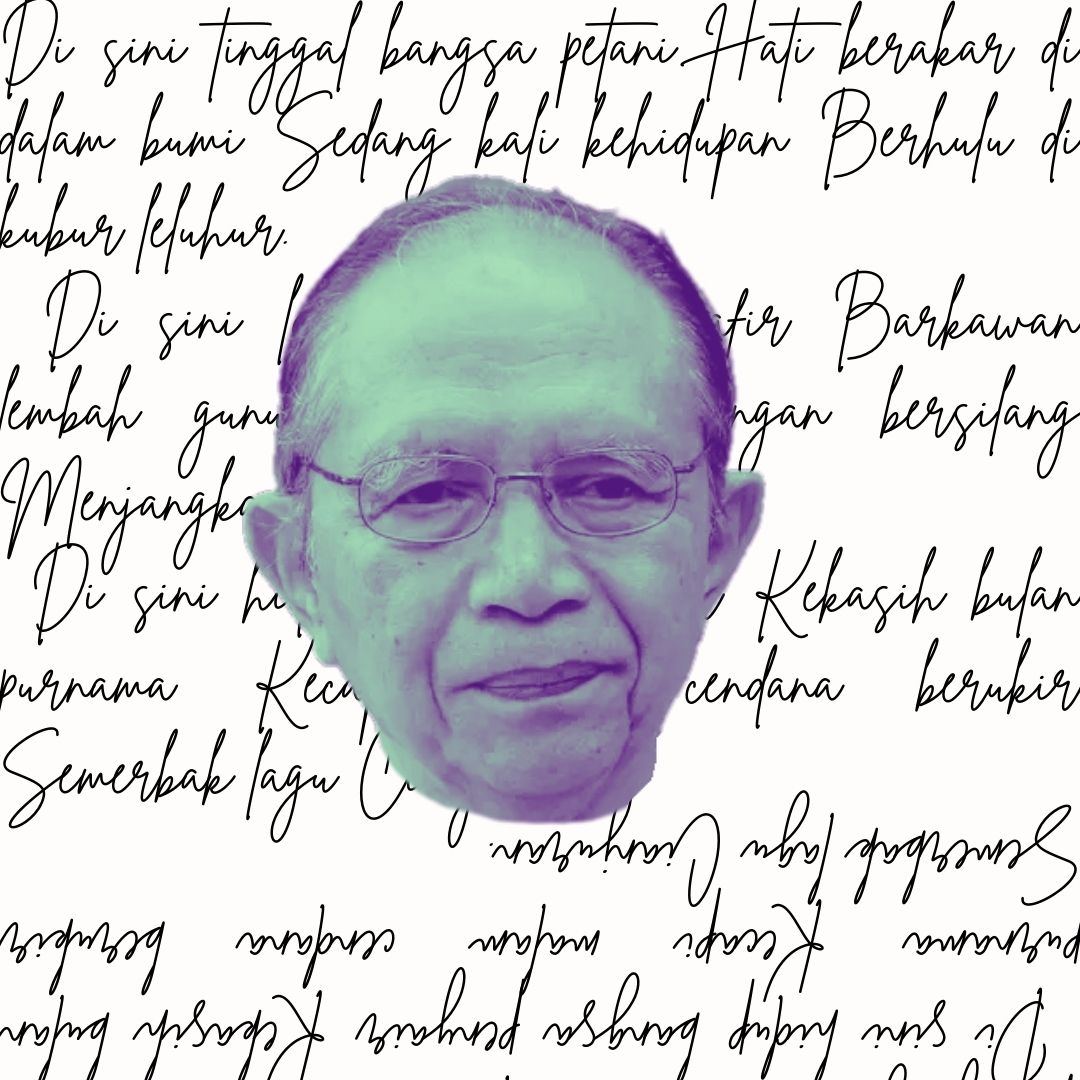 Di sini tinggal bangsa petani Hati berakar di
dalam bumi Sedang kali kehidupan Berhulu di
kubur leluhur.
Di sini Barkawan
lembah bersilang
Di sini Kekasih bulan
purnama cendana berukir
Semerbak lagu
Semerbak lagu Cianjuran.
purnama Kecapi malam cendana berukir
Di sini hidup bangsa penyair Kekasih bulan